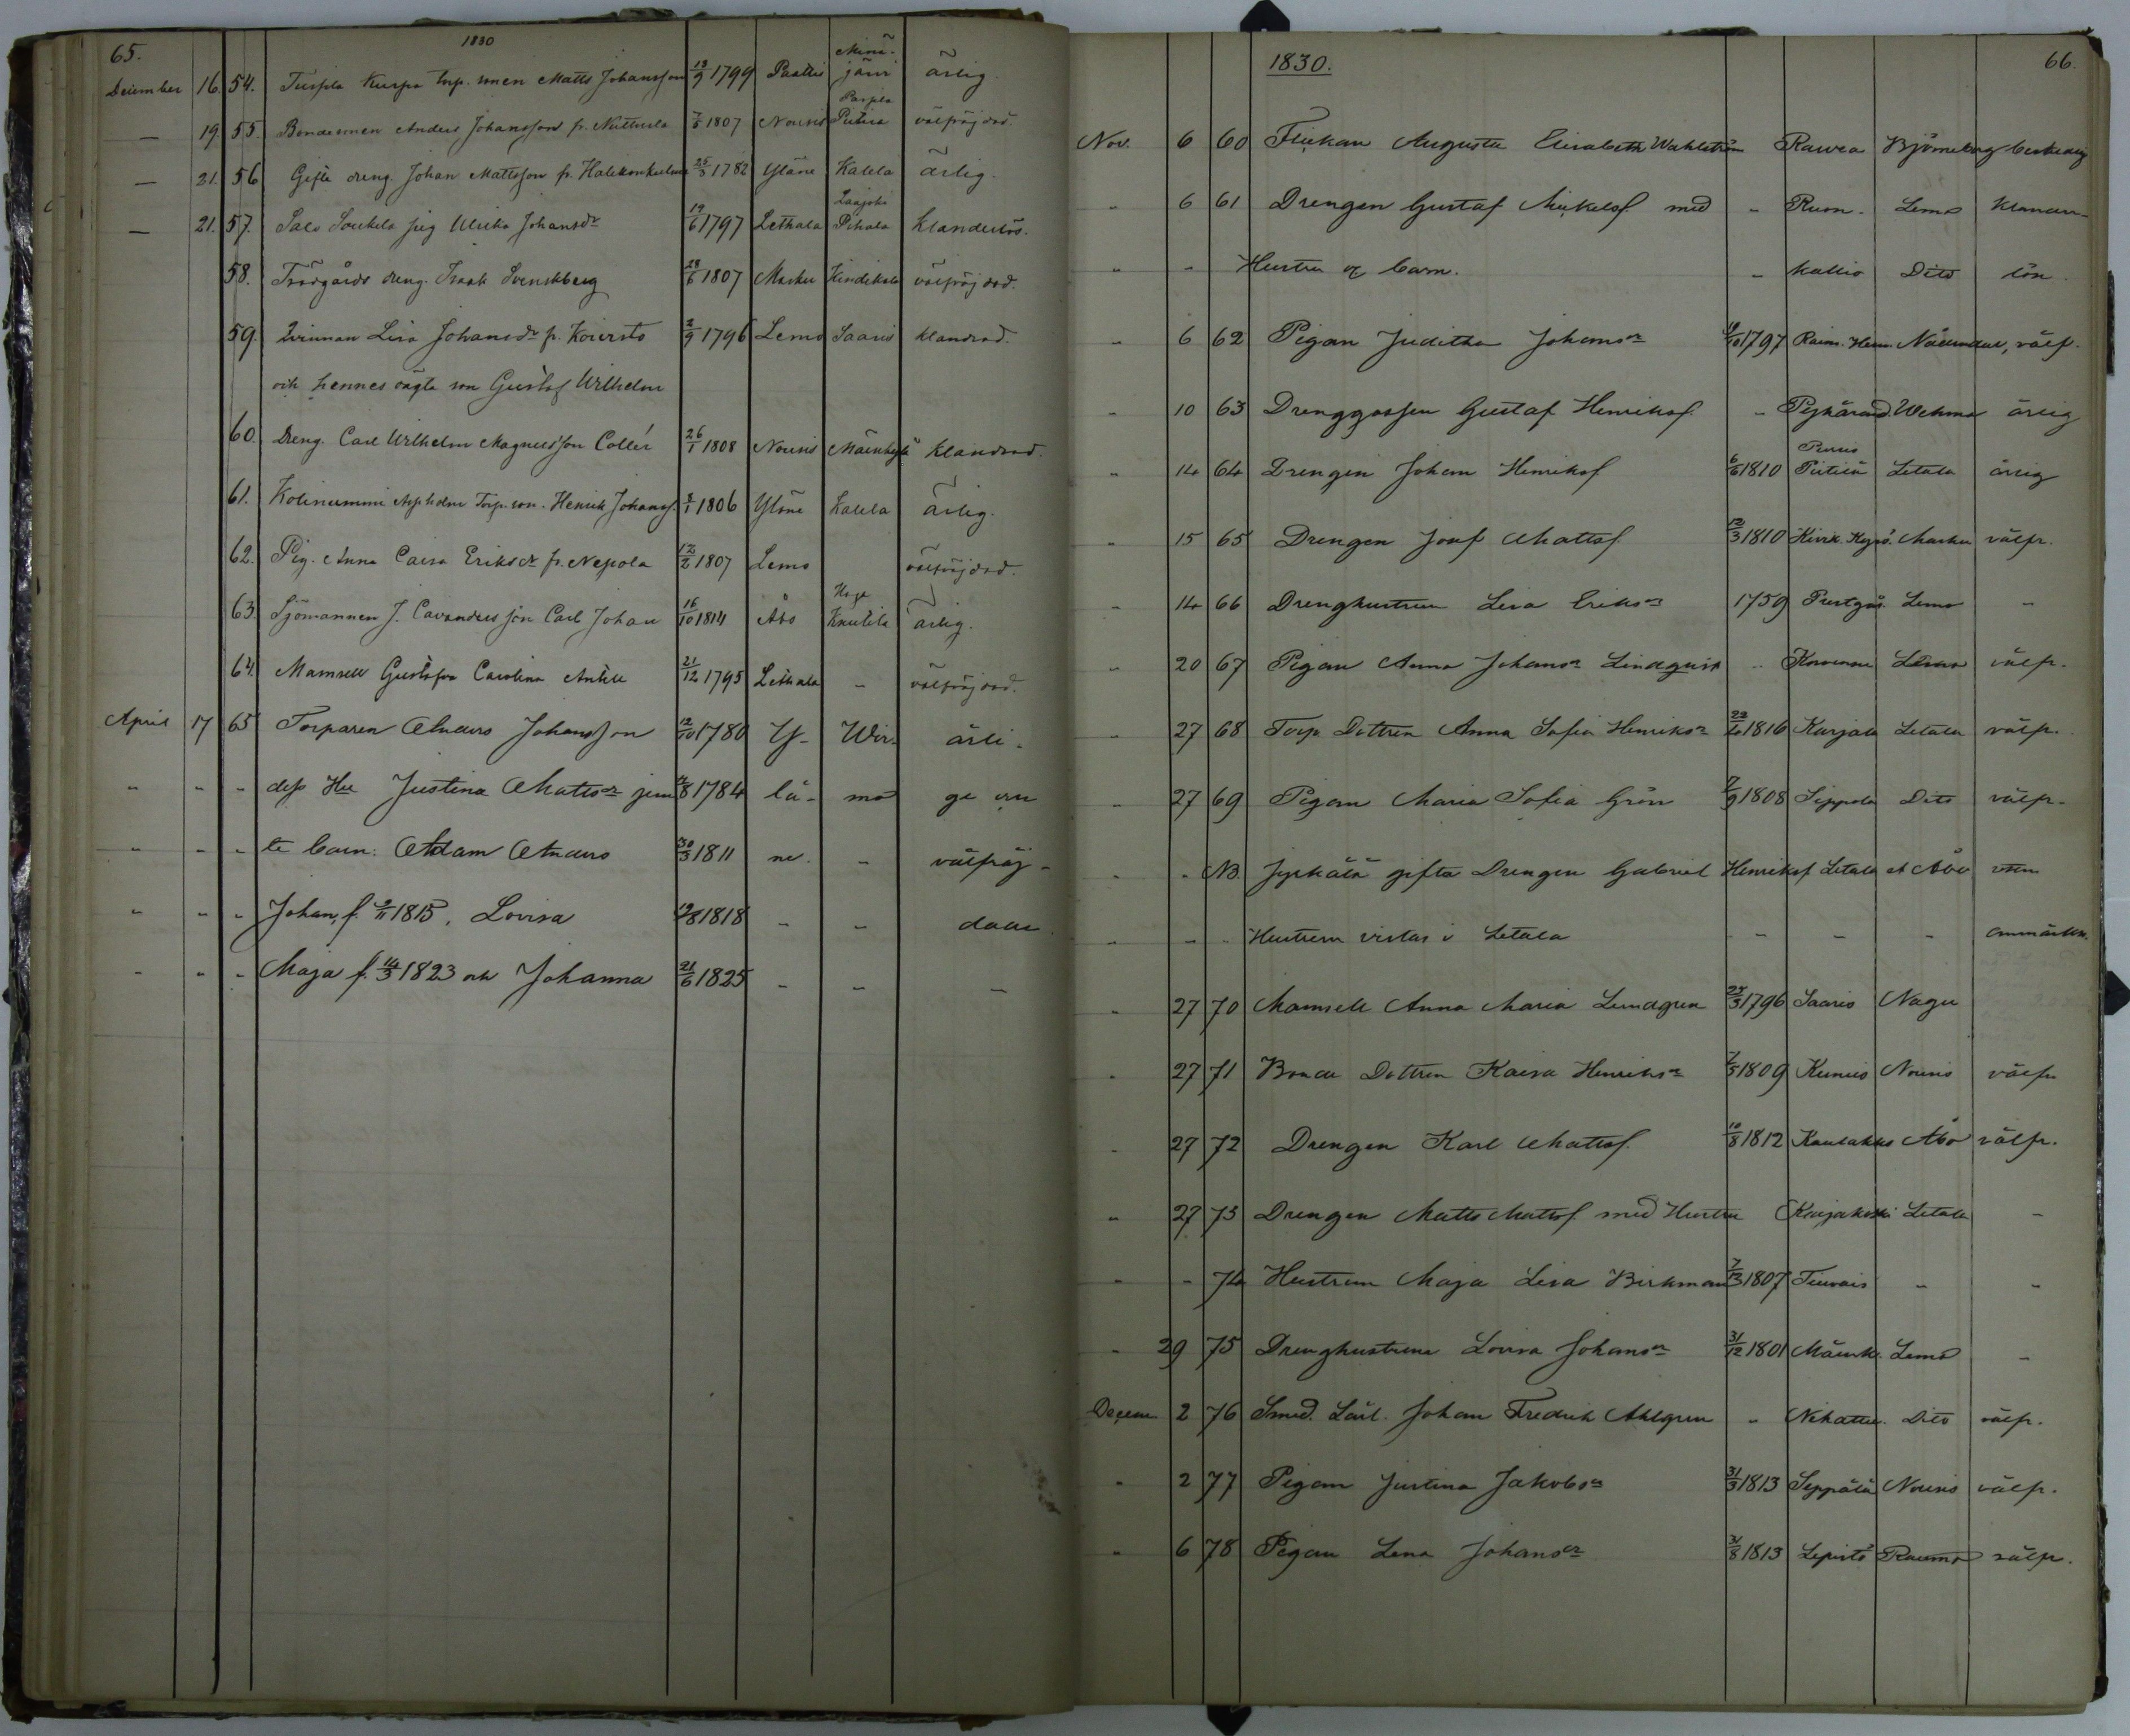 65.
1830
December 16. 54. Turpla Kurpa torp. sonen Matts Johansson 13/9 1799 Pattis Minä-järvi ärlig
— 19. 55. Bondesonen Anders Johansson fr. Nuthurla 7/5 1807 Nousis Parpla Putira välfräjdad.
— 21. 56 Gifte dreng. Johan Mattsson fr. 25/3 1782 Yläne Kalela ärlig.
— 21. 57. Salo Soukela pig Ulrika Johansdr 19/6 1797 Lethala Laajoki Pihala klanderlös.
58. Trädgårds dreng. Isaak Svenskberg 28/6 1807 Masku välfräjdad.
59. Qvinnan Lisa Johansdr fr. Koiersto 2/9 1796 Lemo Saaris klandrad.
och hennes oägta son Gustaf Wilhelm
60. Dreng. Carl Wilhelm Magnusson Collér 26/1 1808 Nousis Mäenkylä klandrad.
61. Kolinummi Aspholm Torp. son. Henrik Johanss. 8/1 1806 Yläne Kalela ärlig.
62. Pig. Anna Caisa Eriksdr fr. Nepola 12/2 1807 Lemo välfräjdad.
63. Sjömannen J. Cavanders son Carl Johan 16/10 1814 Åbo Haga Knutila ärlig.
64. Mamsell Gustafva Carolina Antell 21/12 1795 Lethala - välfräjdad.
April 17 65 Torparen Anders Johansson 12/10 1780 Y- Wir- ärli-
" " " dess Hu Justina Mattsdr jem 1784 lä- mo ge
" " " te barn. Adam Anders 30/3 1811 ne. - välfräj-
" " " Johan, f. 2/11 1815, Lovisa 12/8 1818 - - dade
" " " Maja f. 14/3 1823 och Johanna 21/6 1825 - - -
1830.
66.
Nov. 6 60 Flickan Augusta Elisabeth Wahlström Rawea Björneborg
" 6 61 Drengen Gustaf Mickelsf. med " Rum. Lemo klander-
" - Hustru o barn. - kallio Dito lös
" 6 62 Pigan Juditha Johansdr 1797 Raim. Hem. Nådendal, välf.
" 10 63 Drenggossen Gustaf Henriksf. " Wehmo ärlig
" 14 64 Drengen Johan Henriksf 6/6 1810 Putiiä Letala ärlig
" 15 65 Drengen Josef Mattsf. 12/3 1810 Masku välfr.
" 14 66 Drenghustrun Lisa Eriksdr 1759 Prestgår. Lemo -
" 20 67 Pigan Anna Johansdr Lindqvist " Lemo välfr.
" 27 68 Torp Dottren Anna Sofia Henriksdr 22/10 1816 Karjala Letala välfr.
" 27 69 Pigan Maria Sofia Grön 7/9 1808 Seppola Dito välfr.
" " NB. Jyrkälä gifta Drengen Gabriel Henriksf Letala et Åbo utan
" " " Hustrun vistas i Letala - - - anmärkn.
" 27 70 Mamsell Anna Maria Lundgren 25/3 1796 Saaris Nagu
" 27 71 Bonde Dottren Kaisa Henriksdr 7/5 1809 Nousis välfr
" 27 72 Drengen Karl Mattsf. 10/8 1812 Kaulakko Åbo välfr.
" 27 73 Drengen Matts Mattsf med Hustru Karjakoski Letala -
" - 74 Hustrun Maja Lisa Birkman 7/12 1807 - -
" 29 75 Drenghustrun Lovisa Johansdr 31/12 1801 Mäenk. Lemo -
Decem. 2 76 Smed. Lärl. Johan Fredrik Ahlgren " Nihattu. Dito välfr.
" 2 77 Pigan Justina Jakobsdr 31/3 1813 Seppälä Nousis välfr.
" 6 78 Pigan Lena Johansdr 31/8 1813 Lepistö Raumo välfr.